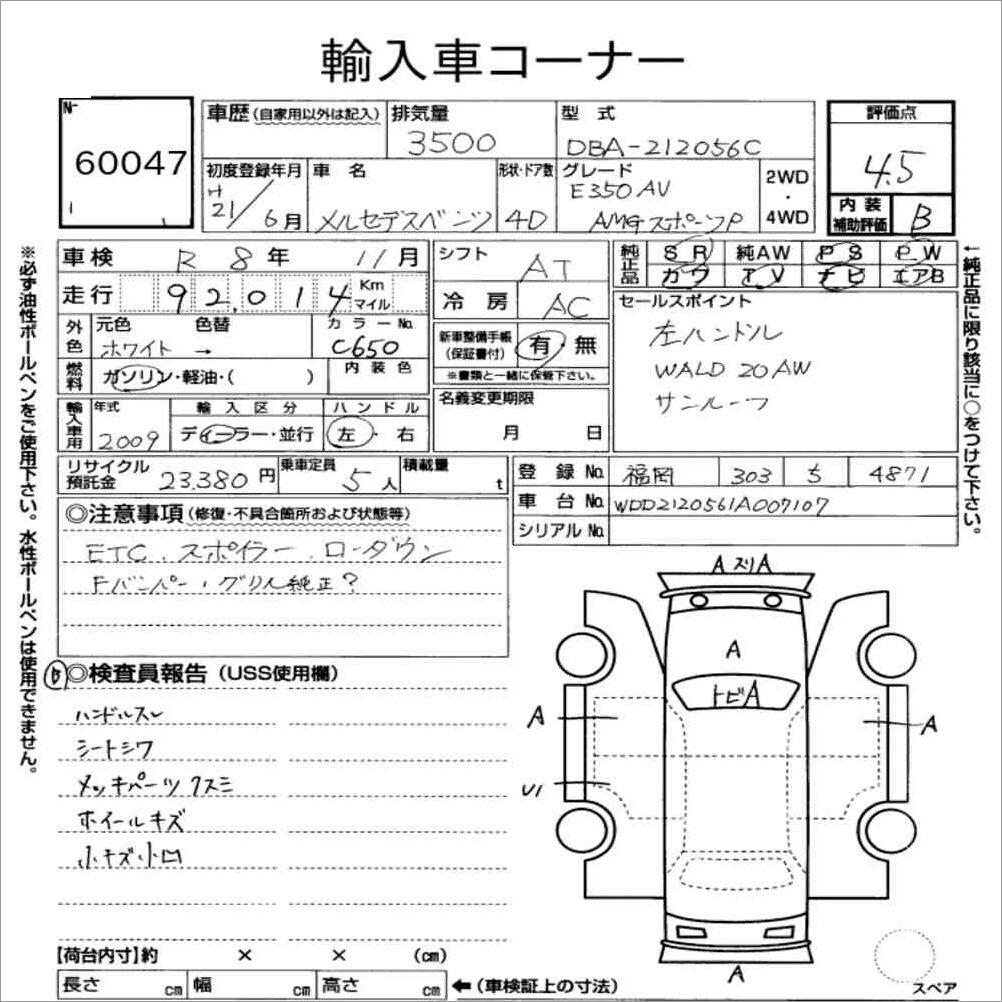 輸入車コーナー
No
60047
車歴 (自家用以外は記入) 排気量 3500
型式 DBA-212056C
評価点 4.5
初度登録年月 H21/6月
車名 メルセデスベンツ
形状・ドア数 4D
グレード E350 AV
AMGスポーツP
2WD・4WD
内装補助評価 B
車検 R 8年 11月
走行 92,014 Km マイル
外色 元色 ホワイト 色替 → カラーNo. C650
燃料 ガソリン・軽油・( ) 内装色
輸入車用 年式 2009 輸入区分 ディーラー・並行 ハンドル 左・右
シフト AT
冷房 AC
新車整備手帳(保証書付) 有・無
※書類と一緒に保管下さい。
名義変更期限 月 日
純正品 SR 純AW PS PW
カワ TV ナビ エアB
セールスポイント
左ハンドル
WALD 20AW
サンルーフ
リサイクル預託金 23.380円 乗車定員 5人 積載量 t
登録No. 福岡 303 5 4871
車台No. WDD2120561A007107
シリアルNo.
◎注意事項(修復・不具合箇所および状態等)
ETC.スポイラー.ローダウン
Fバンパー・グリル純正?
◎検査員報告(USS使用欄)
ハンドルスレ
シートシワ
メッキパーツクスミ
ホイールキズ
小キズ小凹
A スリA
A
トビA
A
A
U1
A
スペア
【荷台内寸】約 × × (cm)
長さ cm 幅 cm 高さ cm ←(車検証上の寸法)
※必ず油性ボールペンをご使用下さい。水性ボールペンは使用できません。
←純正品に限り該当に○をつけて下さい。